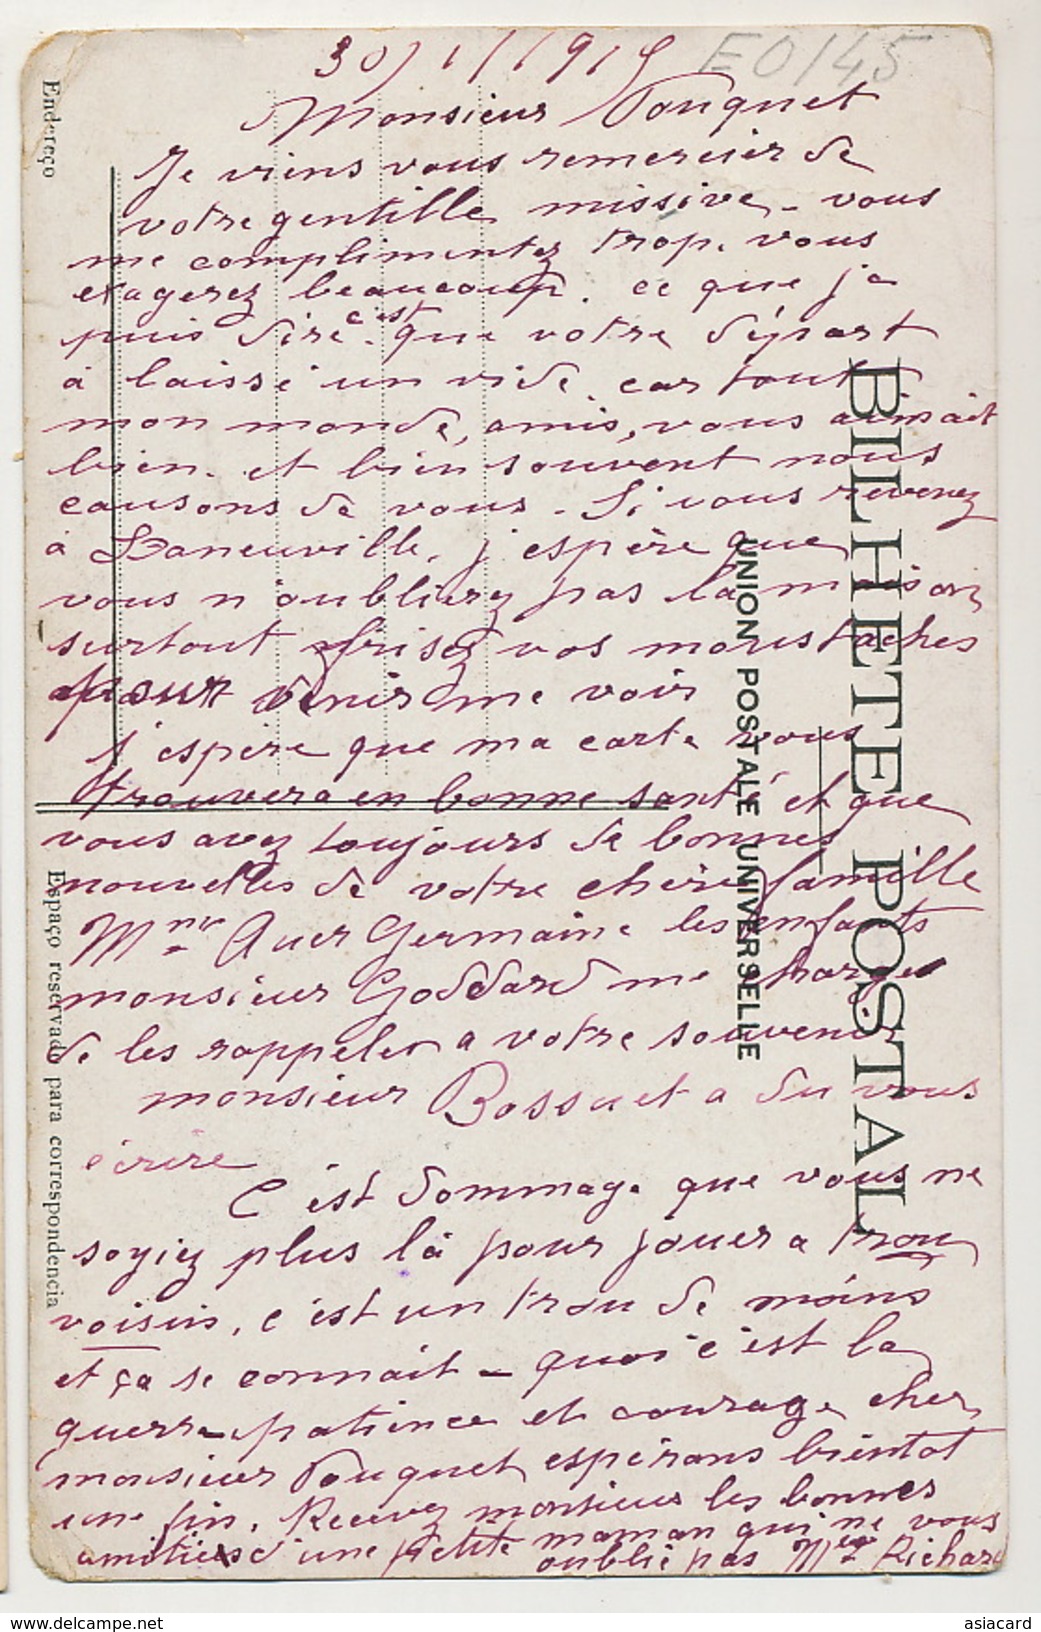 30/1/1915
E0145
Monsieur Fouquet
Je viens vous remercier de
votre gentille missive - vous
me complimentez trop. vous
exagerez beaucoup. ce que je
puis dire c'est que votre départ
à laissé un vide car tout
mon monde, amis, vous aimait
bien. et bien souvent nous
causons de vous - Si vous revenez
à Laneuville, j'espère que
vous n'oublierez pas la maison
surtout frisez vos moustaches
pour venir me voir
J'espère que ma carte vous
trouvera en bonne santé et que
vous avez toujours de bonnes
nouvelles de votre chère famille
Mme Auer Germaine les enfants
monsieur Goddard me charge
de les rappeler a votre souvenir
monsieur Bossuet a du vous
écrire
C'est dommage que vous ne
soyiez plus là pour jouer a trou
voisin, c'est un trou de moins
et ça se connait - quoi c'est la
guerre - patience et courage cher
monsieur Fouquet espérons bientot
une fin. Recevez monsieur les bonnes
amitiées d'une petite maman qui ne vous
oublie pas Mme Richard
Endereço
Espaço reservado para correspondencia
BILHETE POSTAL
UNION POSTALE UNIVERSELLE
www.delcampe.net
asiacard